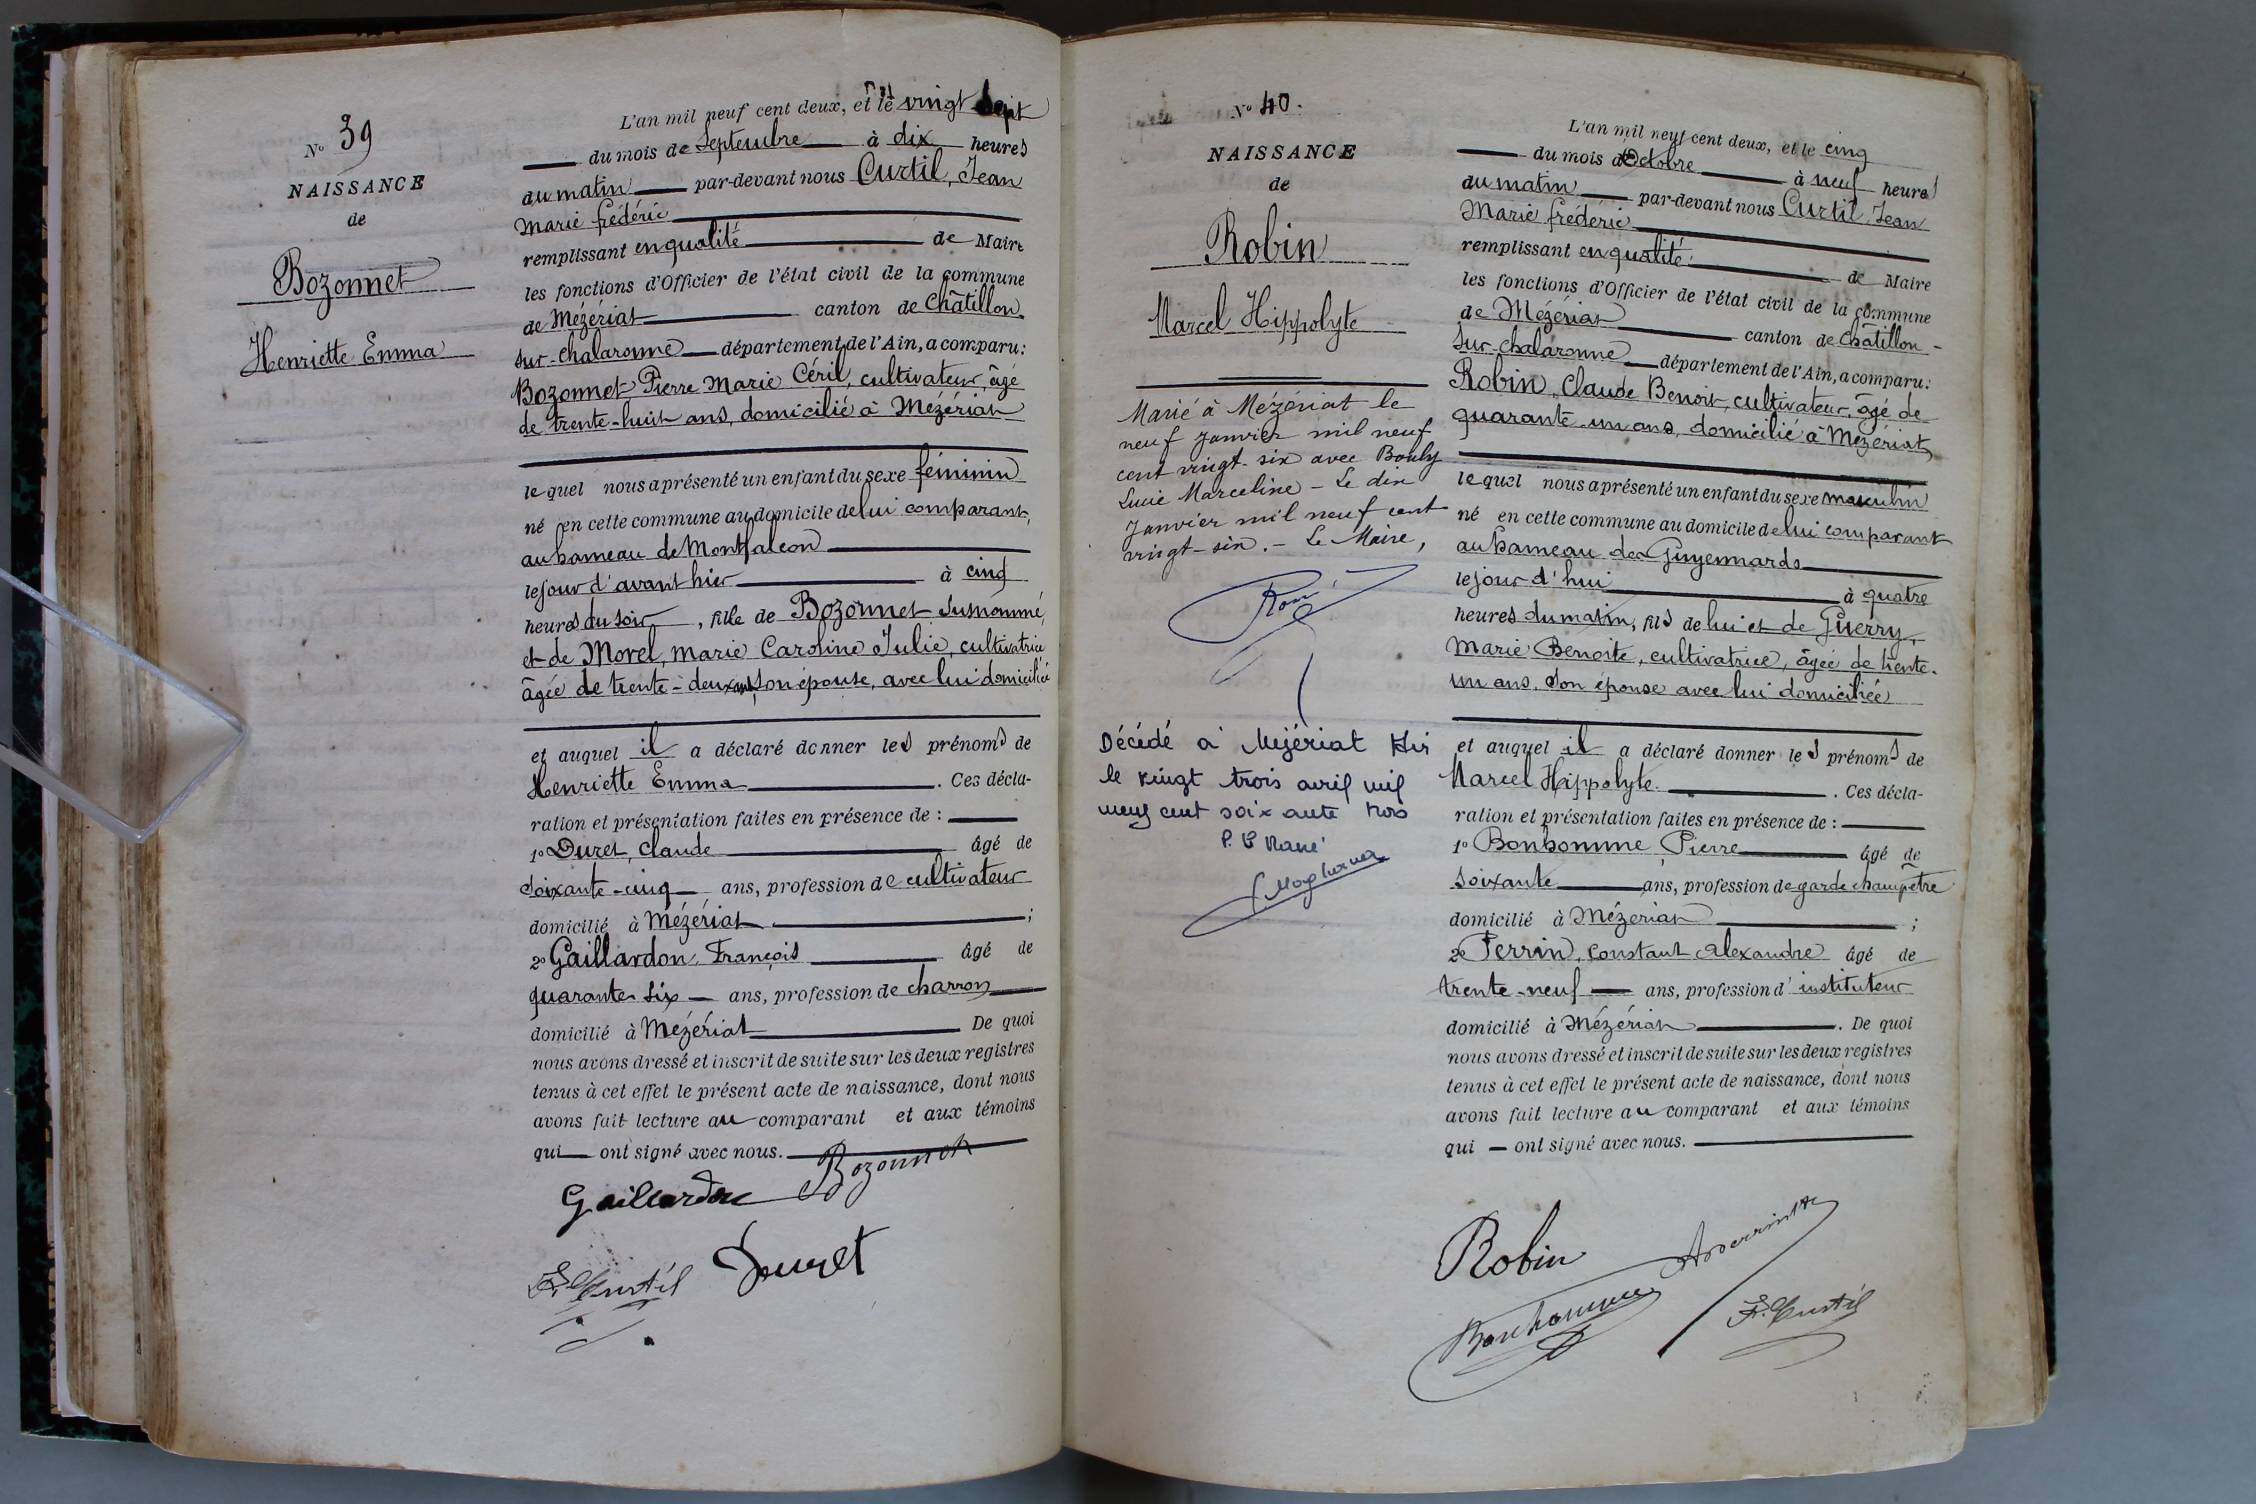 N° 39
NAISSANCE
de
Bozonnet
Henriette Emma
L'an mil neuf cent deux, et le vingt sept
du mois de Septembre à dix heures
du matin par-devant nous Curtil, Jean
Marie frédéric
remplissant en qualité de Maire
les fonctions d'Officier de l'état civil de la commune
de Mézériat canton de Châtillon
sur-chalaronne département de l'Ain, a comparu:
Bozonnet Pierre Marie Céril, cultivateur, âgé
de trente-huit ans, domicilié à Mézériat
lequel nous a présenté un enfant du sexe féminin
né en cette commune au domicile de lui comparant,
au hameau de Montfalcon
le jour d'avant hier à cinq
heures du soir, fille de Bozonnet susnommé,
et de Morel, marie Caroline Julie, cultivatrice
âgée de trente-deux ans, son épouse, avec lui domiciliée
et auquel il a déclaré donner les prénoms de
Henriette Emma. Ces décla-
ration et présentation faites en présence de :
1° Duret, claude âgé de
soixante-cinq ans, profession de cultivateur
domicilié à Mézériat ;
2° Gaillardon, François âgé de
quarante six ans, profession de charron
domicilié à Mézériat De quoi
nous avons dressé et inscrit de suite sur les deux registres
tenus à cet effet le présent acte de naissance, dont nous
avons fait lecture au comparant et aux témoins
qui ont signé avec nous.
Gaillardon Bozonnet
F. Curtil Duret
N° 40.
NAISSANCE
de
Robin
Marcel Hippolyte
Marié à Mézériat le
neuf Janvier mil neuf
cent vingt-six avec Bouly
Lucie Marceline - Le dix
Janvier mil neuf cent
vingt-six. - Le Maire,
Décédé à Mézériat Ain
le vingt trois avril mil
neuf cent soixante trois
L'an mil neuf cent deux, et le cinq
du mois d'Octobre à neuf heures
du matin par-devant nous Curtil, Jean
Marie frédéric
remplissant en qualité de Maire
les fonctions d'Officier de l'état civil de la commune
de Mézériat canton de Châtillon-
sur-chalaronne département de l'Ain, a comparu:
Robin, Claude Benoit, cultivateur, âgé de
quarante-un ans, domicilié à Mézériat,
lequel nous a présenté un enfant du sexe masculin
né en cette commune au domicile de lui comparant
au hameau des Guyennards
le jour d'hui à quatre
heures du matin, fils de lui et de Guerry,
Marie Benoite, cultivatrice, âgée de trente-
un ans, son épouse avec lui domiciliée
et auquel il a déclaré donner les prénoms de
Marcel Hippolyte. Ces décla-
ration et présentation faites en présence de :
1° Bonhomme Pierre âgé de
soixante ans, profession de garde champêtre
domicilié à Mézériat ;
2° Perrin, constant Alexandre âgé de
trente-neuf ans, profession d'instituteur
domicilié à Mézériat. De quoi
nous avons dressé et inscrit de suite sur les deux registres
tenus à cet effet le présent acte de naissance, dont nous
avons fait lecture au comparant et aux témoins
qui ont signé avec nous.
Robin
Bonhomme F. Curtil